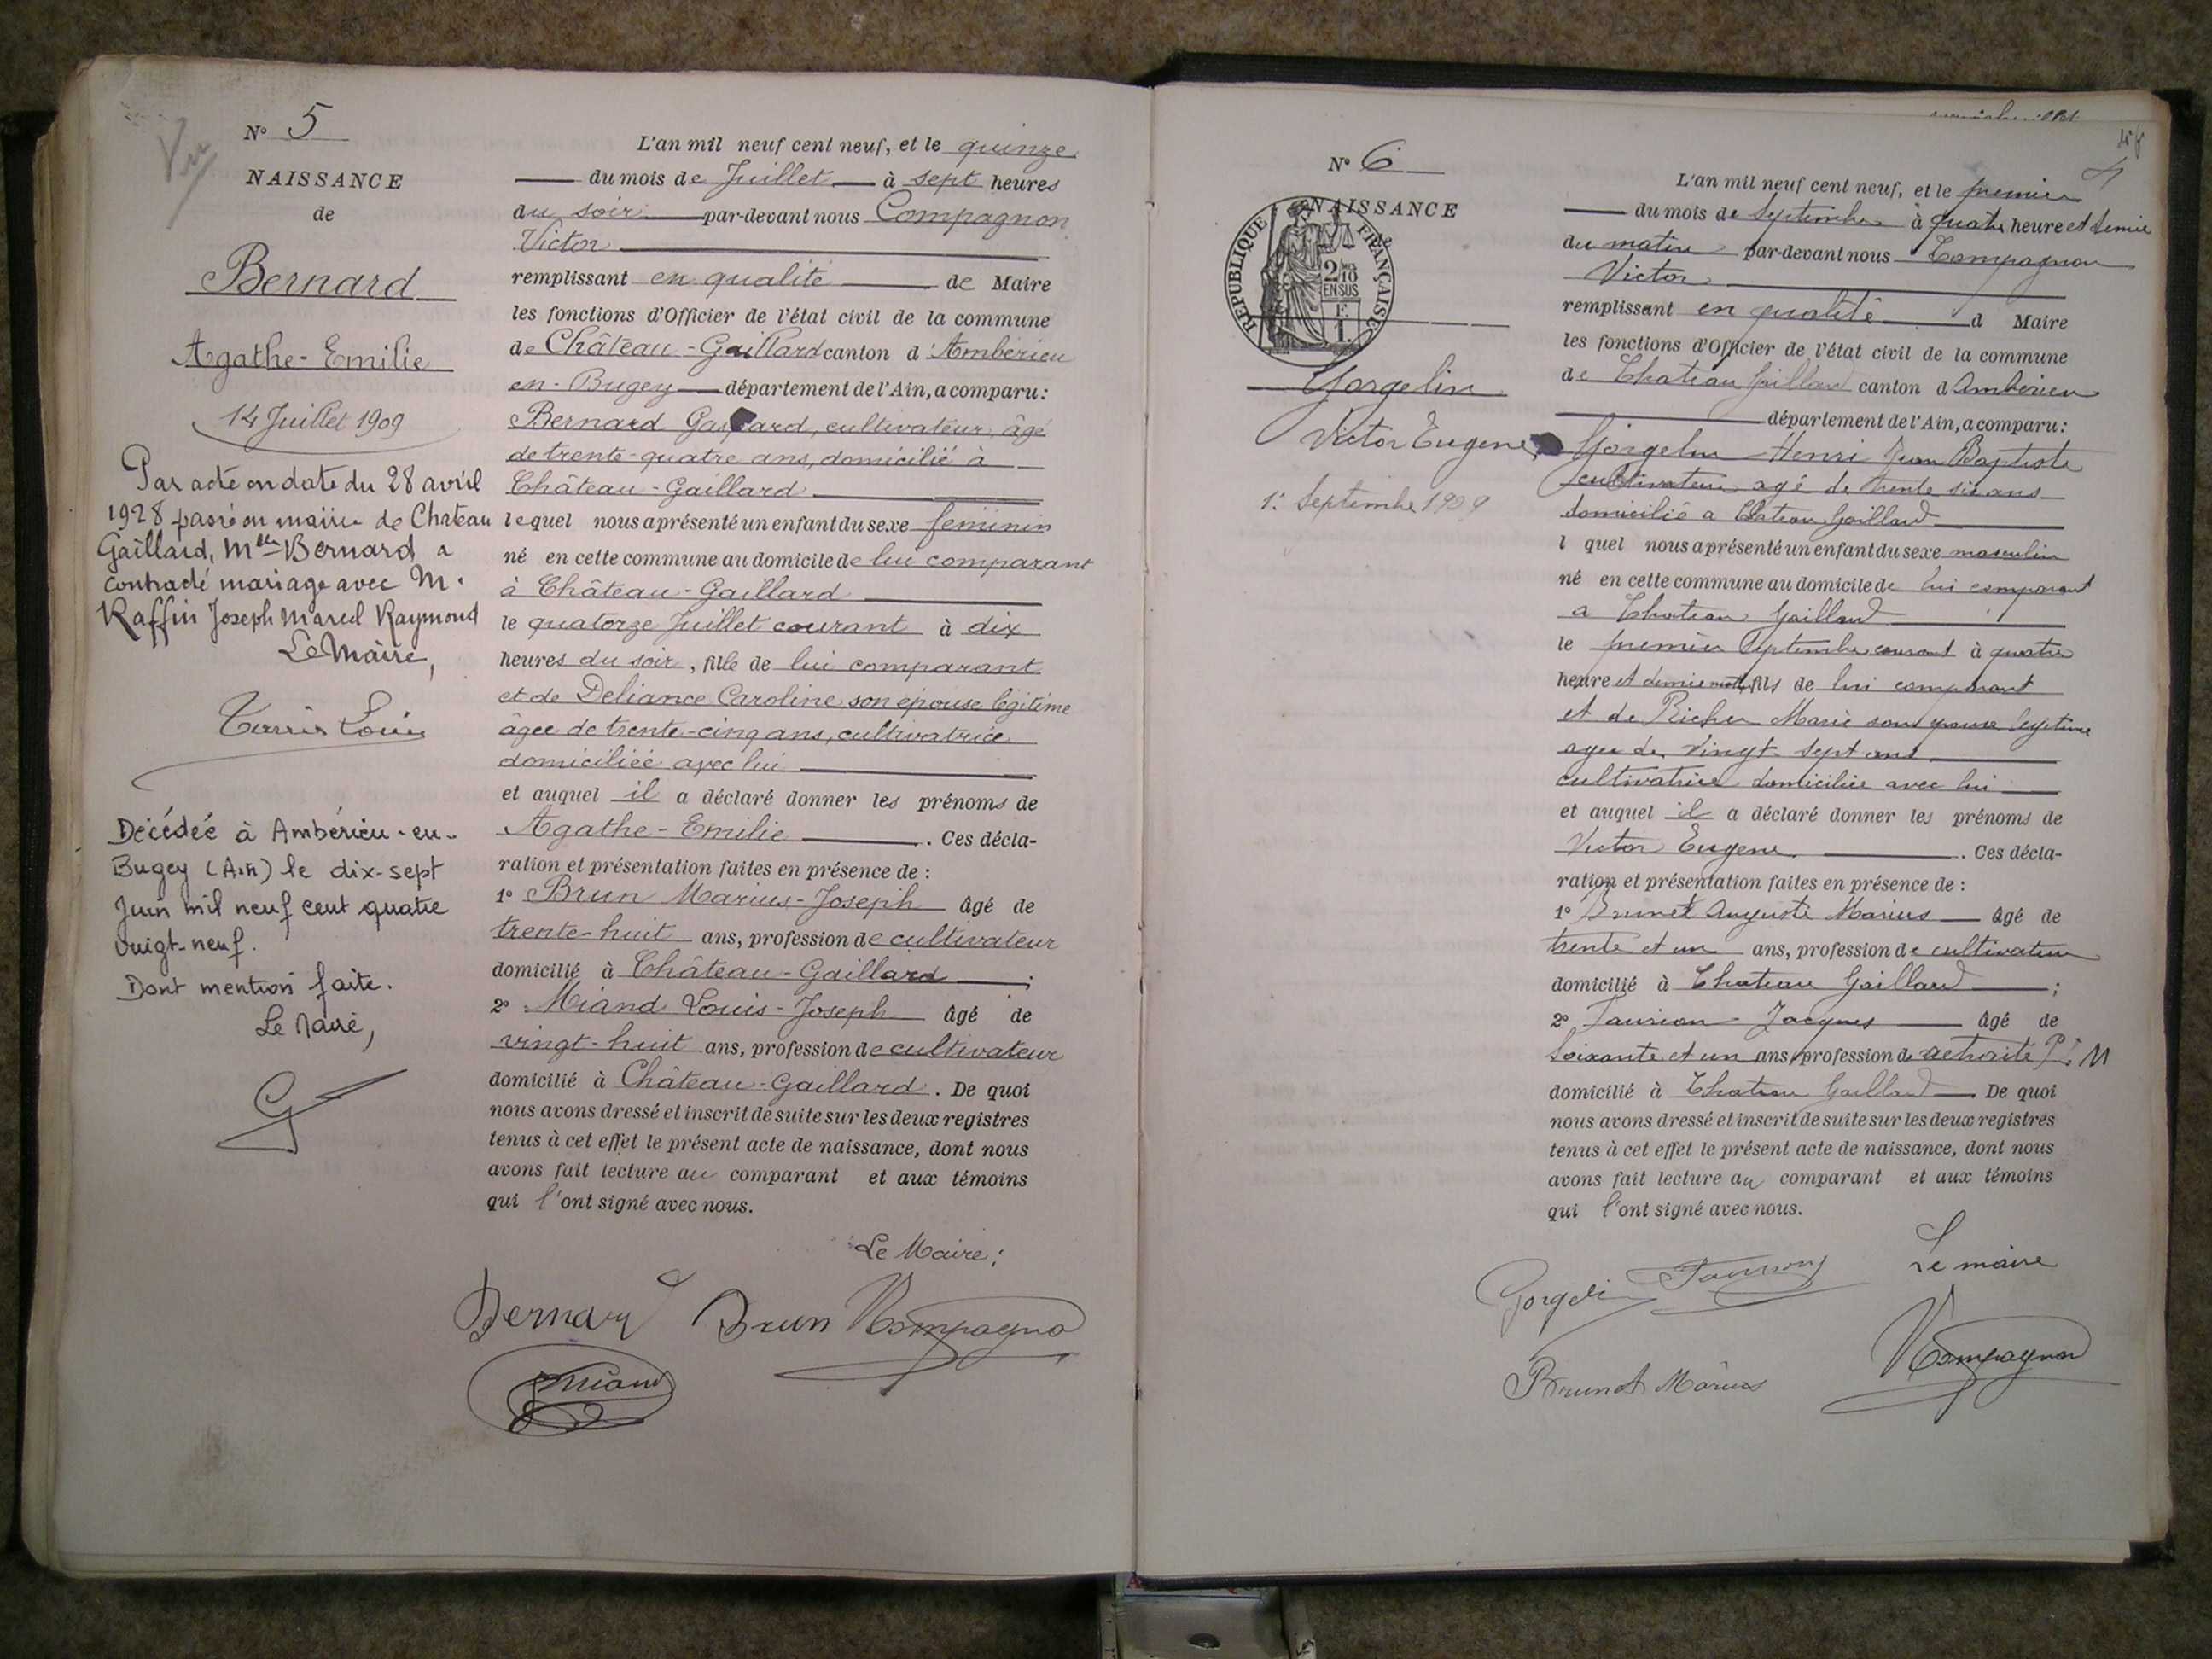 Vu
N° 5
NAISSANCE
de
Bernard
Agathe-Emilie
14 Juillet 1909
Par acte en date du 28 avril
1928 passé en mairie de Chateau
Gaillard, Mlle Bernard a
contracté mariage avec M.
Raffin Joseph Marcel Raymond
Le Maire,
Louis
Décédée à Ambérieu-en-
Bugey (Ain) le dix-sept
Juin mil neuf cent quatre
vingt-neuf.
Dont mention faite.
Le Maire,
L'an mil neuf cent neuf, et le quinze
du mois de Juillet à sept heures
du soir par-devant nous Compagnon
Victor
remplissant en qualité de Maire
les fonctions d'Officier de l'état civil de la commune
de Château-Gaillard canton d'Ambérieu
en-Bugey département de l'Ain, a comparu :
Bernard Gaspard, cultivateur, âgé
de trente-quatre ans, domicilié à
Château-Gaillard
lequel nous a présenté un enfant du sexe féminin
né en cette commune au domicile de lui comparant
à Château-Gaillard
le quatorze Juillet courant à dix
heures du soir, fille de lui comparant
et de Deliance Caroline son épouse légitime
âgée de trente-cinq ans, cultivatrice
domiciliée avec lui
et auquel il a déclaré donner les prénoms de
Agathe-Emilie . Ces décla-
ration et présentation faites en présence de :
1° Brun Marius-Joseph âgé de
trente-huit ans, profession de cultivateur
domicilié à Château-Gaillard ;
2° Miand Louis-Joseph âgé de
vingt-huit ans, profession de cultivateur
domicilié à Château-Gaillard. De quoi
nous avons dressé et inscrit de suite sur les deux registres
tenus à cet effet le présent acte de naissance, dont nous
avons fait lecture au comparant et aux témoins
qui l'ont signé avec nous.
Le Maire :
Bernard Brun VCompagnon
Miand
N° 6
NAISSANCE
RÉPUBLIQUE FRANÇAISE
2/10
EN SUS
Gorgelin
Victor Eugene
1er Septembre 1909
L'an mil neuf cent neuf, et le premier
du mois de Septembre à quatre heure et demie
du matin par-devant nous Compagnon
Victor
remplissant en qualité d Maire
les fonctions d'Officier de l'état civil de la commune
de Chateau Gaillard canton d Ambérieu
département de l'Ain, a comparu :
Gorgelin Henri Jean Baptiste
cultivateur agé de trente six ans
domicilié a Chateau Gaillard
l quel nous a présenté un enfant du sexe masculin
né en cette commune au domicile de lui comparant
a Chateau Gaillard
le premier Septembre courant à quatre
heure et demie matin, fils de lui comparant
et de Marie son epouse legitime
agee de vingt sept ans
cultivatrice domiciliée avec lui
et auquel il a déclaré donner les prénoms de
Victor Eugene . Ces décla-
ration et présentation faites en présence de :
1° Brunet Auguste Marius âgé de
trente et un ans, profession de cultivateur
domicilié à Chateau Gaillard ;
2° Jacques âgé de
Soixante et un ans, profession de retraité
domicilié à Chateau Gaillard De quoi
nous avons dressé et inscrit de suite sur les deux registres
tenus à cet effet le présent acte de naissance, dont nous
avons fait lecture au comparant et aux témoins
qui l'ont signé avec nous.
Le maire
Gorgelin
VCompagnon
Brunet Marius